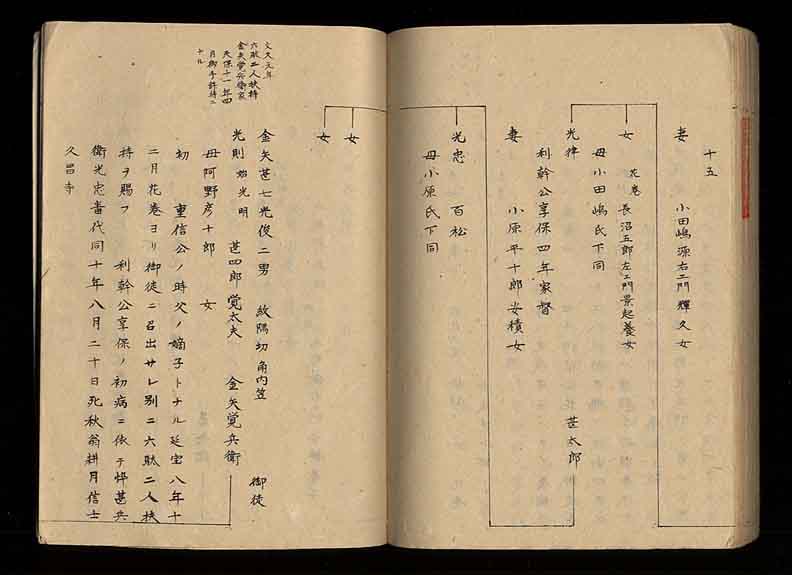 十五
妻 小田嶋源右エ門輝久女
女 花巻 長沼五郎左エ門景起養女
母小田嶋氏下同
光律 甚太郎
利幹公享保四年家督
妻 小原平十郎安積女
光忠 百松
母小原氏下同
女
女
文久元年
六駄二人扶持
金矢覚兵衛家
天保十一年四
月御手許持ニ
ナル
金矢甚七光俊二男 紋隅切角内笠 御徒
光則 始光明 甚四郎 覚太夫 金矢覚兵衛
母阿野彦十郎女
初 重信公ノ時父ノ嫡子トナル延宝八年十
二月花巻ヨリ御徒ニ召出サレ別ニ六駄二人扶
持ヲ賜フ 利幹公享保ノ初病ニ依テ悴甚兵
衛光忠番代同十年八月二十日死秋翁耕月信士
久昌寺